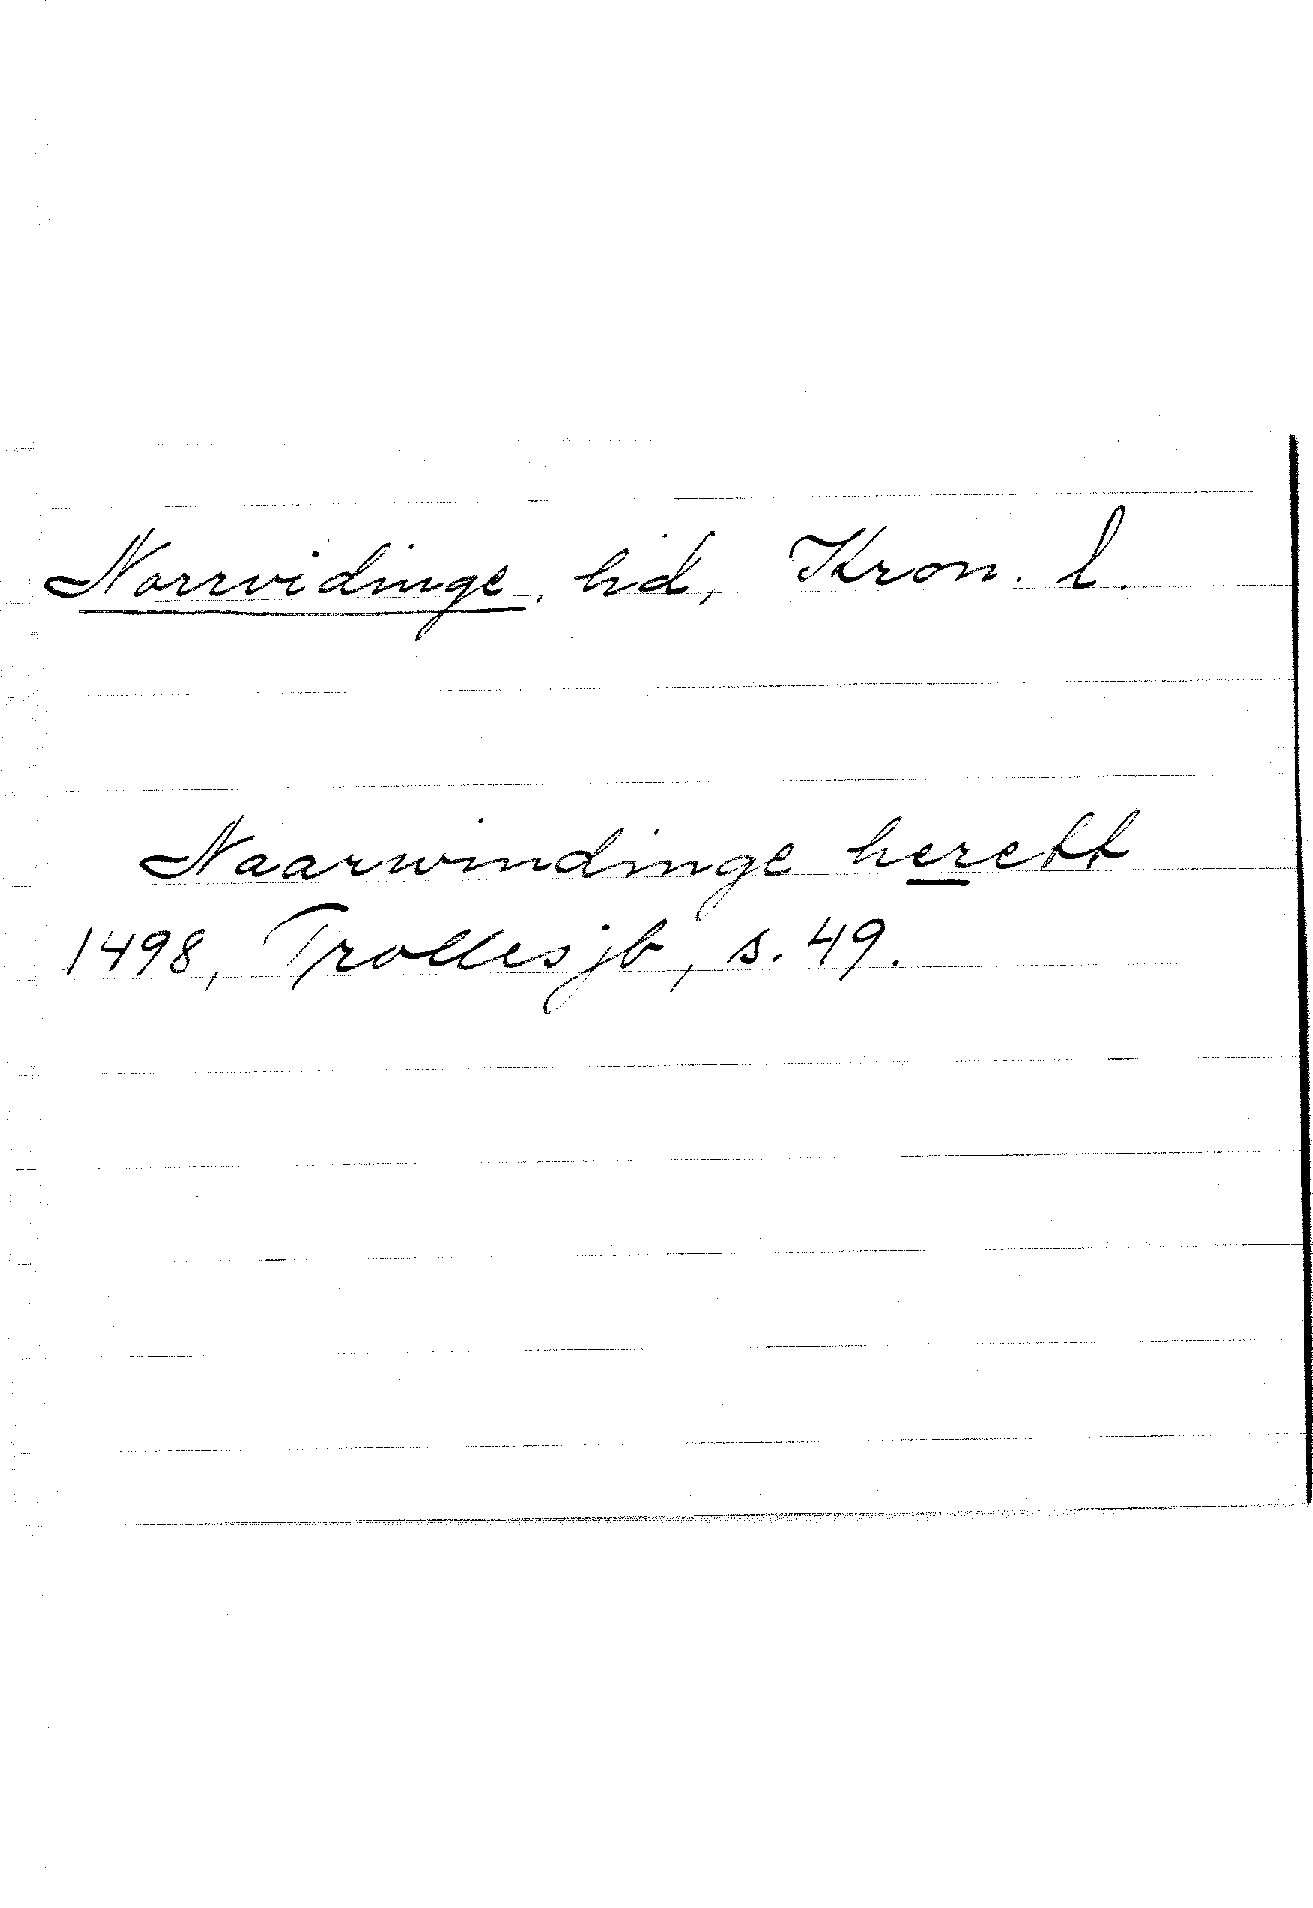 Norrvidinge, hd, Kron. l.
Naarwindinge herett
1498, Trolles jb, s. 49.